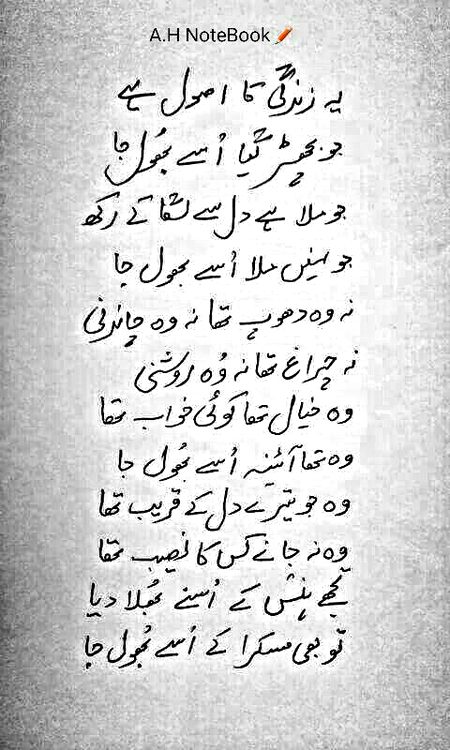 A.H NoteBook
یہ زندگی کا اصول ہے
جو بچھڑ گیا اُسے بھُول جا
جو ملا ہے دل سے لگا کے رکھ
جو نہیں ملا اُسے بھول جا
نہ وہ دھوپ تھا نہ وہ چاندنی
نہ چراغ تھا نہ وُہ روشنی
وہ خیال تھا کوئی خواب تھا
وہ تھا آئینہ اُسے بھُول جا
وہ جو تیرے دل کے قریب تھا
وہ نہ جانے کس کا نصیب تھا
تجھے ہنس کے اُسنے بھُلا دیا
تو بھی مسکرا کے اُسے بھُول جا